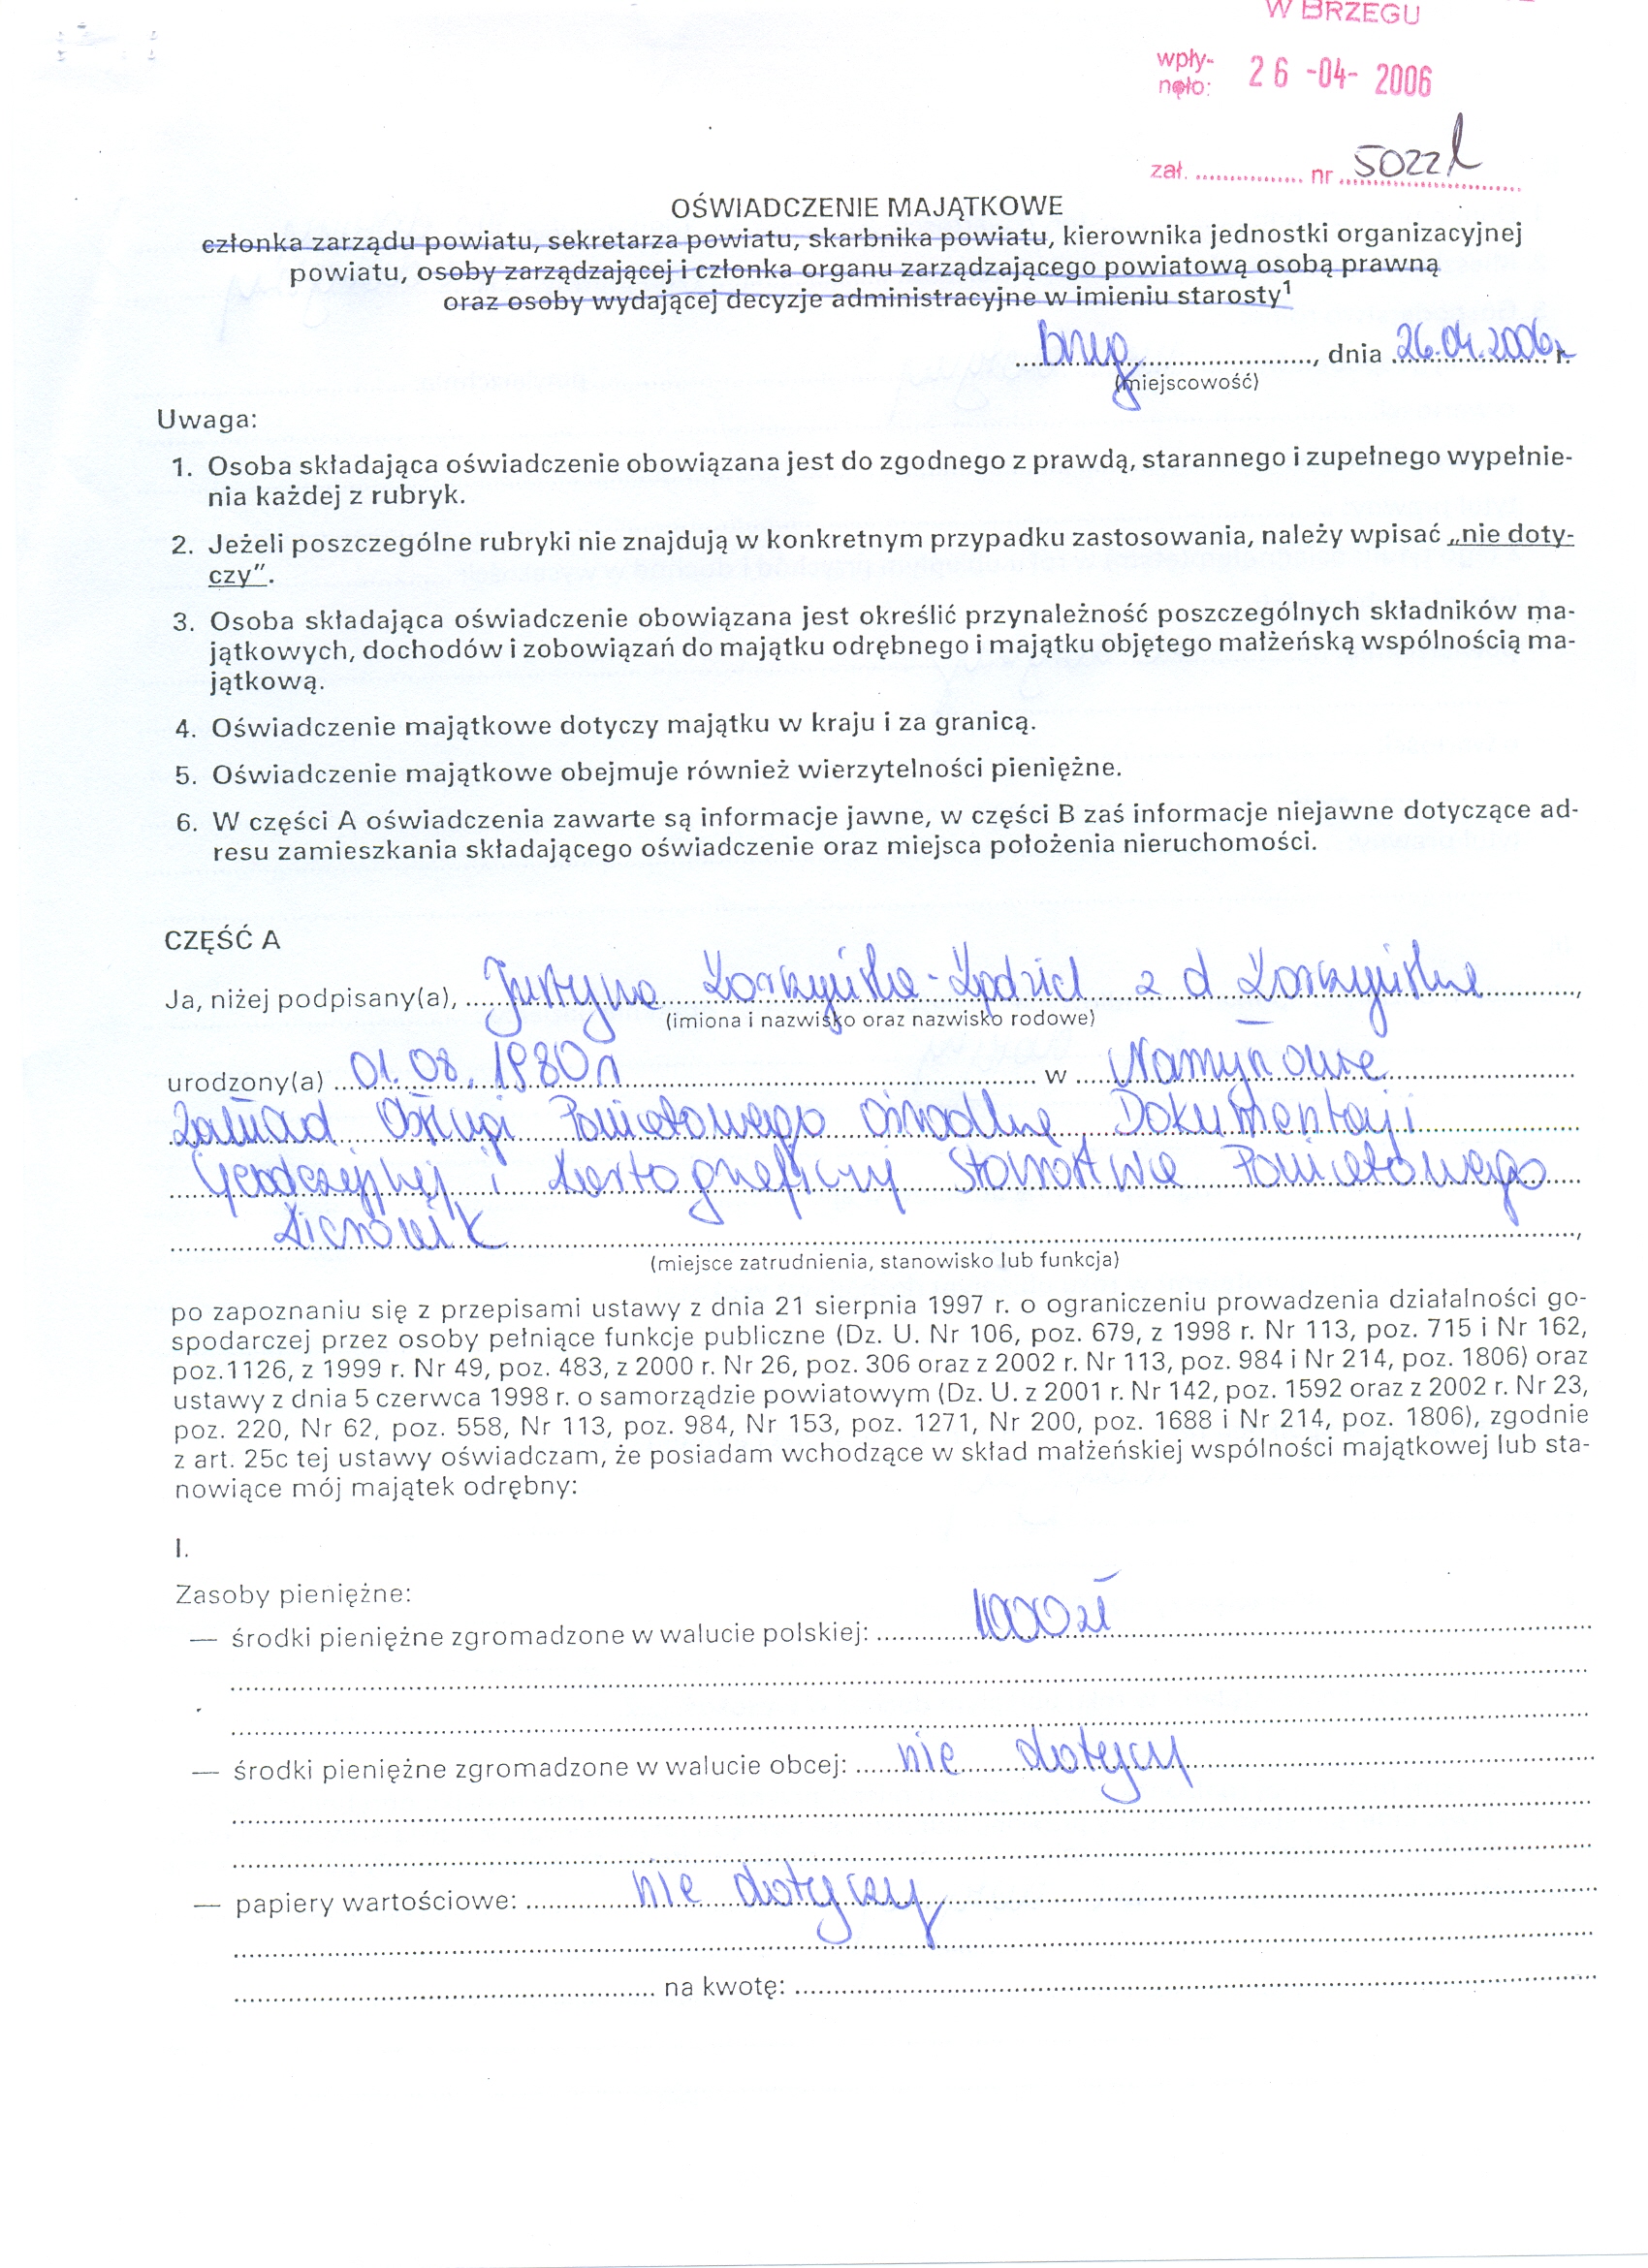 W BRZEGU
wpły-
nęło: 26 -04- 2006
zał. ................ nr 5022
OŚWIADCZENIE MAJĄTKOWE
członka zarządu powiatu, sekretarza powiatu, skarbnika powiatu, kierownika jednostki organizacyjnej
powiatu, osoby zarządzającej i członka organu zarządzającego powiatową osobą prawną
oraz osoby wydającej decyzje administracyjne w imieniu starosty¹
Brzeg, dnia 26.04.2006r. r.
(miejscowość)
Uwaga:
1. Osoba składająca oświadczenie obowiązana jest do zgodnego z prawdą, starannego i zupełnego wypełnie-
nia każdej z rubryk.
2. Jeżeli poszczególne rubryki nie znajdują w konkretnym przypadku zastosowania, należy wpisać „nie doty-
czy".
3. Osoba składająca oświadczenie obowiązana jest określić przynależność poszczególnych składników ma-
jątkowych, dochodów i zobowiązań do majątku odrębnego i majątku objętego małżeńską wspólnością ma-
jątkową.
4. Oświadczenie majątkowe dotyczy majątku w kraju i za granicą.
5. Oświadczenie majątkowe obejmuje również wierzytelności pieniężne.
6. W części A oświadczenia zawarte są informacje jawne, w części B zaś informacje niejawne dotyczące ad-
resu zamieszkania składającego oświadczenie oraz miejsca położenia nieruchomości.
CZĘŚĆ A
Ja, niżej podpisany(a), Justyna z d
(imiona i nazwisko oraz nazwisko rodowe)
urodzony(a) 01.08.1980r w Namysłowie
Zakład Obsługi Powiatowego Ośrodka Dokumentacji
Geodezyjnej i Kartograficznej Starostwa Powiatowego
kierownik
(miejsce zatrudnienia, stanowisko lub funkcja)
po zapoznaniu się z przepisami ustawy z dnia 21 sierpnia 1997 r. o ograniczeniu prowadzenia działalności go-
spodarczej przez osoby pełniące funkcje publiczne (Dz. U. Nr 106, poz. 679, z 1998 r. Nr 113, poz. 715 i Nr 162,
poz.1126, z 1999 r. Nr 49, poz. 483, z 2000 r. Nr 26, poz. 306 oraz z 2002 r. Nr 113, poz. 984 i Nr 214, poz. 1806) oraz
ustawy z dnia 5 czerwca 1998 r. o samorządzie powiatowym (Dz. U. z 2001 r. Nr 142, poz. 1592 oraz z 2002 r. Nr 23,
poz. 220, Nr 62, poz. 558, Nr 113, poz. 984, Nr 153, poz. 1271, Nr 200, poz. 1688 i Nr 214, poz. 1806), zgodnie
z art. 25c tej ustawy oświadczam, że posiadam wchodzące w skład małżeńskiej wspólności majątkowej lub sta-
nowiące mój majątek odrębny:
I.
Zasoby pieniężne:
— środki pieniężne zgromadzone w walucie polskiej: 1000zł
— środki pieniężne zgromadzone w walucie obcej: nie dotyczy
— papiery wartościowe: nie dotyczy
na kwotę: